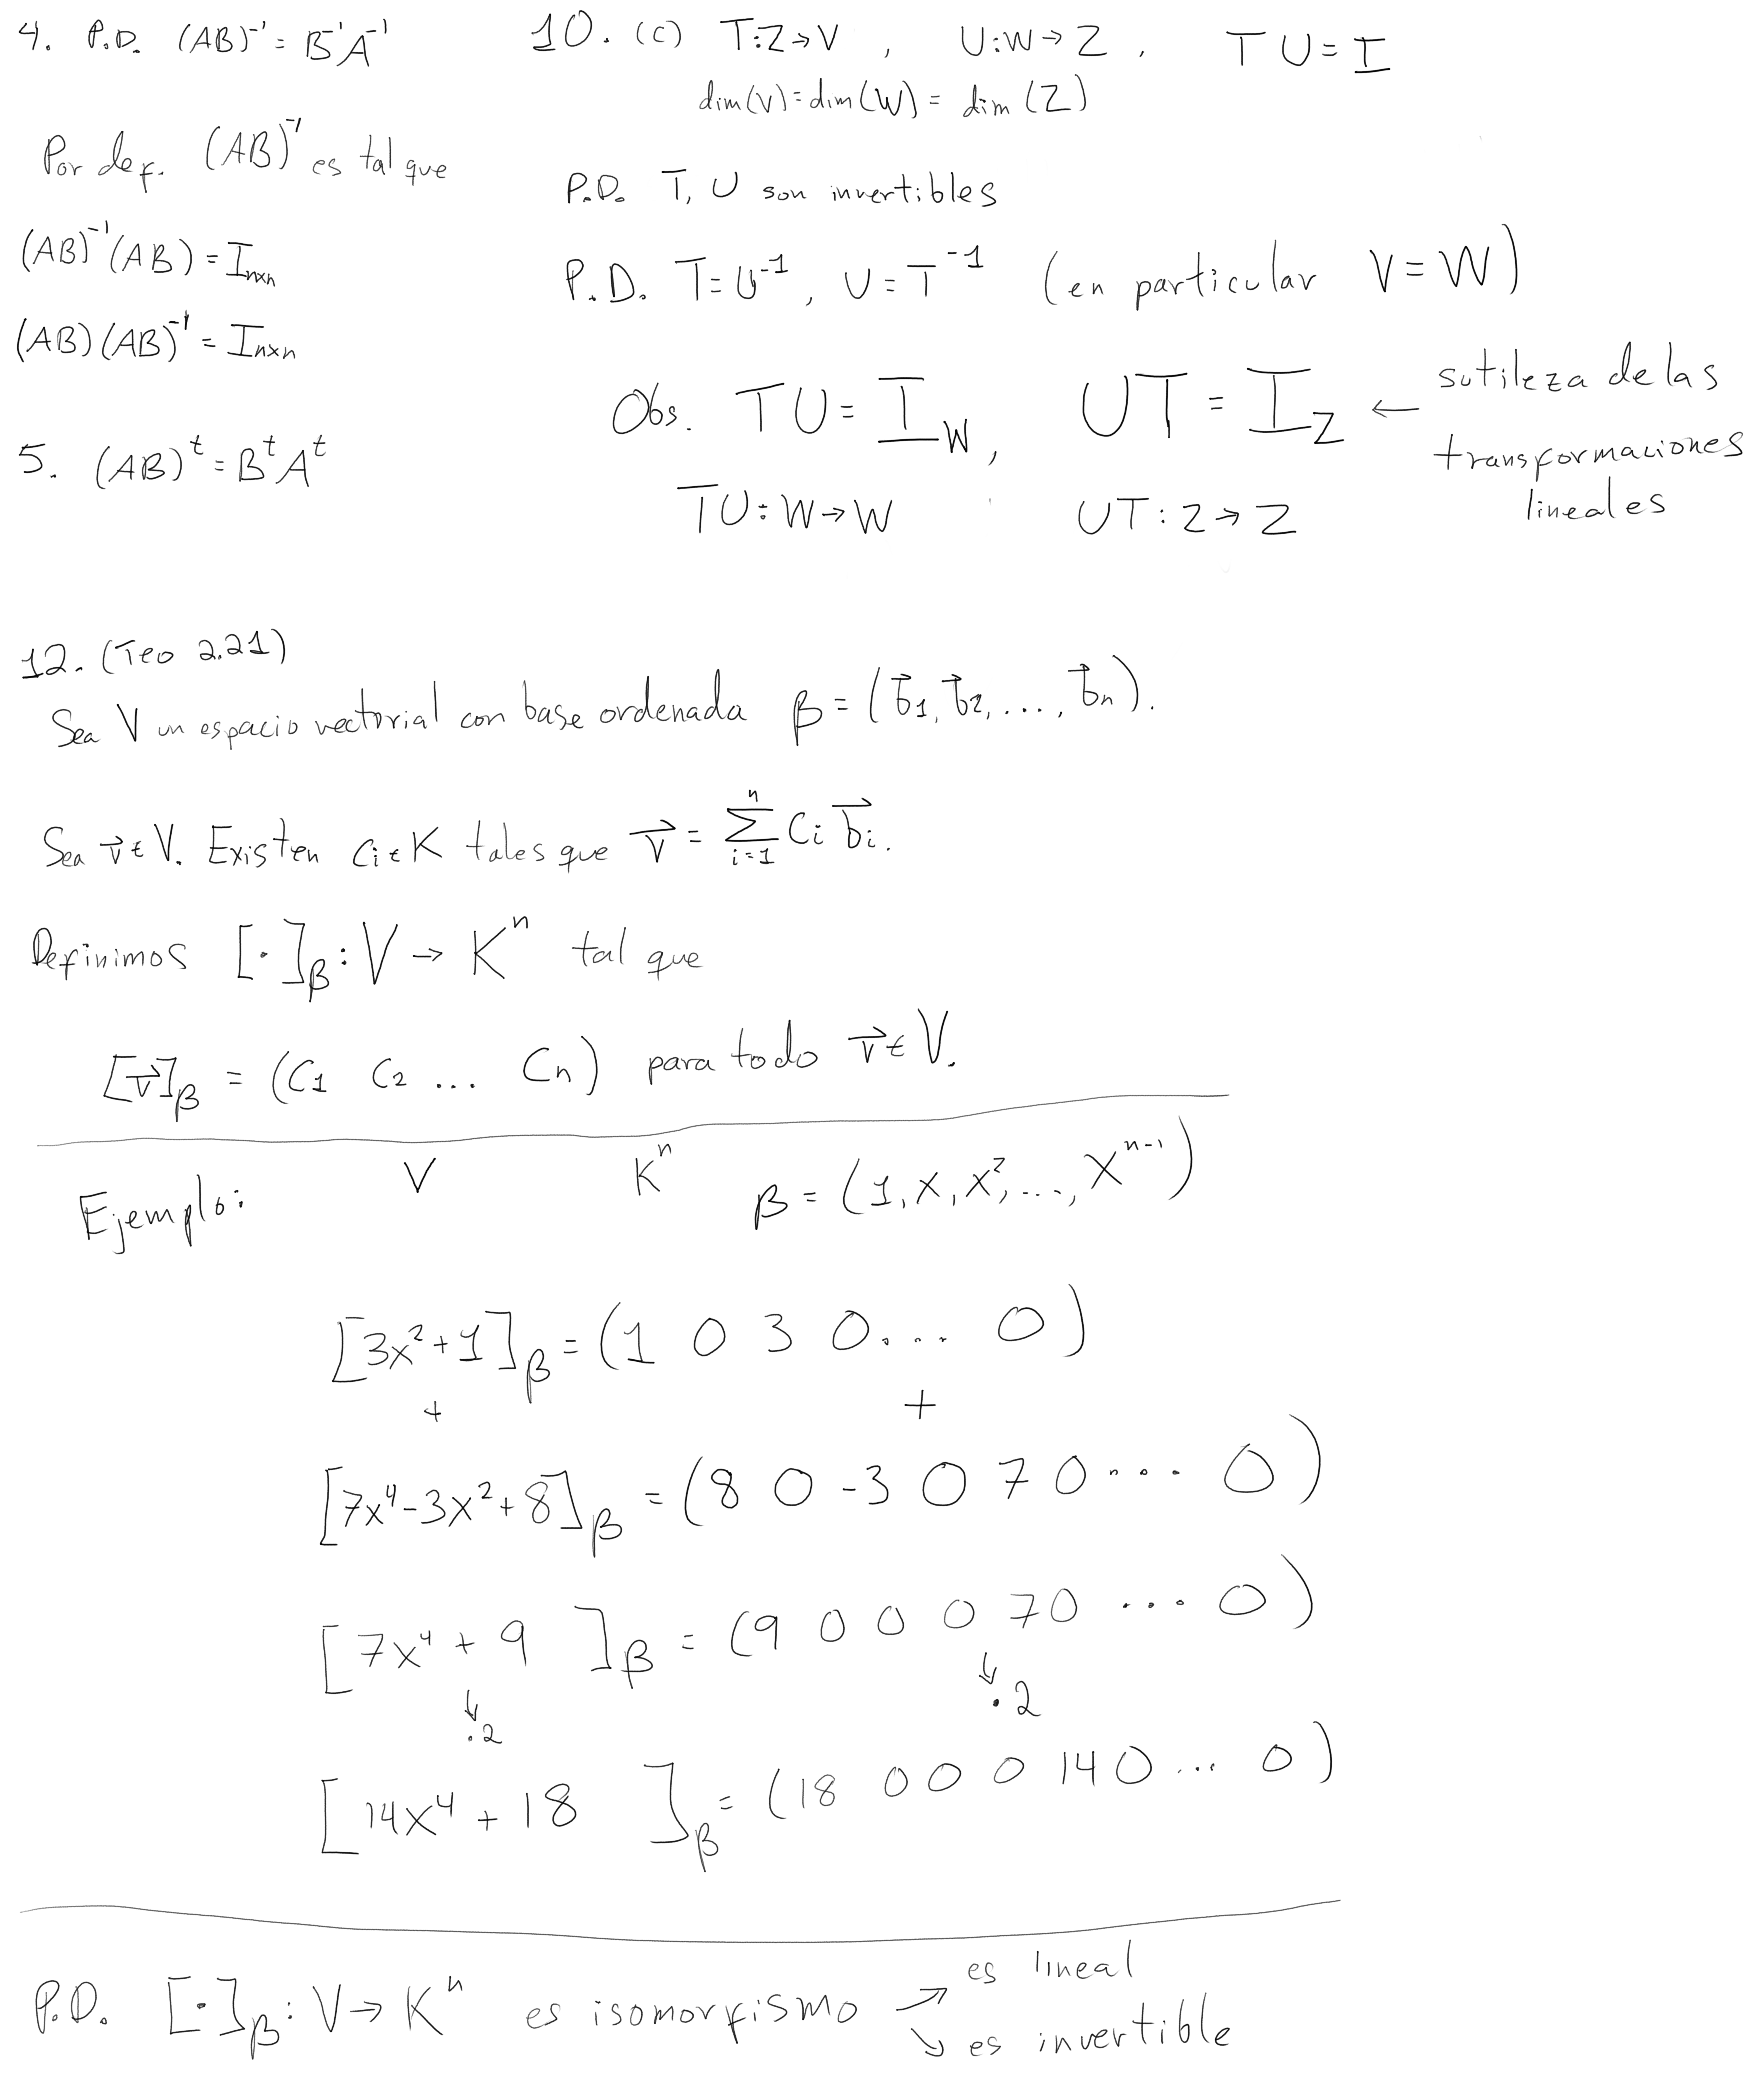 4. P.D. (AB)⁻¹ = B⁻¹A⁻¹
Por def. (AB)⁻¹ es tal que
(AB)⁻¹(AB) = Iₙₓₙ
(AB)(AB)⁻¹ = Iₙₓₙ
5. (AB)ᵗ = BᵗAᵗ
10. (c) T:Z→V , U:W→Z , TU = I
dim(V) = dim(W) = dim(Z)
P.D. T, U son invertibles
P.D. T = U⁻¹, U = T⁻¹ (en particular V = W)
Obs. TU = I_W, UT = I_Z ← sutileza de las
transformaciones
lineales
TU:W→W UT:Z→Z
12. (Teo 2.21)
Sea V un espacio vectorial con base ordenada β = (b⃗₁, b⃗₂, ..., b⃗ₙ).
Sea v⃗ ∈ V. Existen cᵢ ∈ K tales que v⃗ = ∑ⁿᵢ₌₁ cᵢ b⃗ᵢ.
Definimos [·]_β : V → Kⁿ tal que
[v⃗]_β = (c₁ c₂ ... cₙ) para todo v⃗ ∈ V.
Ejemplo: V Kⁿ β = (1, x, x², ..., xⁿ⁻¹)
[3x²+1]_β = (1 0 3 0... 0)
+ +
[7x⁴-3x²+8]_β = (8 0 -3 0 7 0 ... 0)
[7x⁴ + 9 ]_β = (9 0 0 0 7 0 ... 0)
↓ ·2 ↓ ·2
[14x⁴ + 18 ]_β = (18 0 0 0 14 0 ... 0)
P.D. [·]_β : V → Kⁿ es isomorfismo ↗ es lineal
↘ es invertible